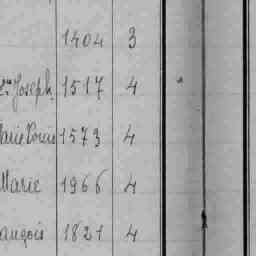 1404 3
Joseph 1517 4
Marie Louis 1573 4
Marie 1966 4
ançois 1821 4